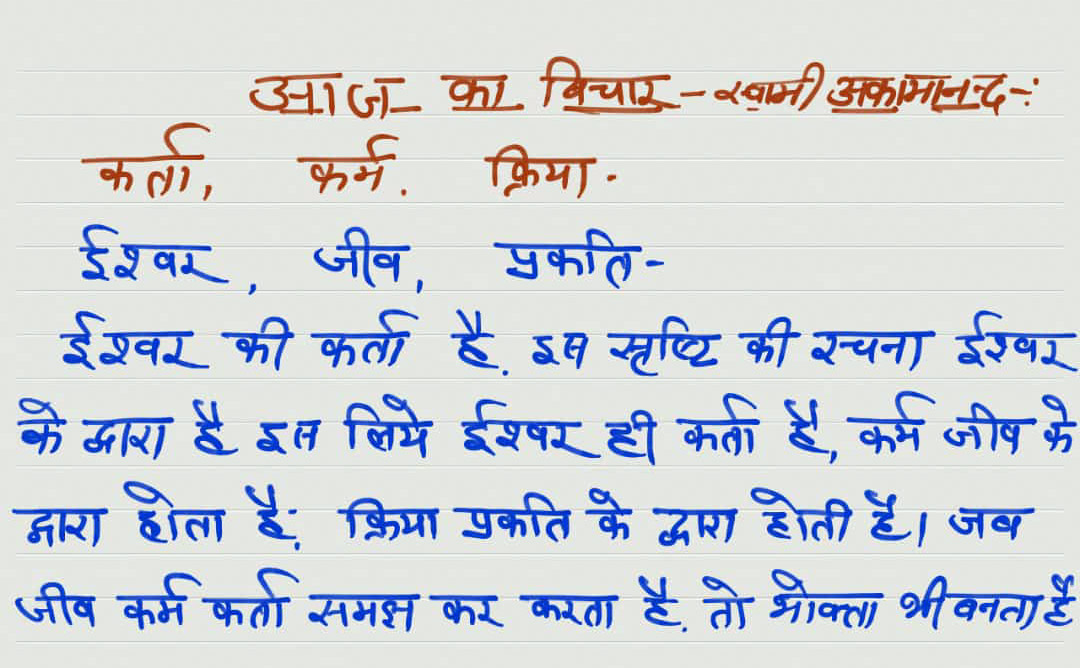 आज का विचार - स्वामी अकामानन्द -:
कर्ता, कर्म. क्रिया.
ईश्वर, जीव, प्रकति-
ईश्वर की कर्ता है. इस सृष्टि की रचना ईश्वर
के द्वारा है इस लिये ईश्वर ही कर्ता है, कर्म जीव के
द्वारा होता है; क्रिया प्रकति के द्वारा होती है। जब
जीव कर्म कर्ता समझ कर करता है. तो भोक्ता भी बनता है